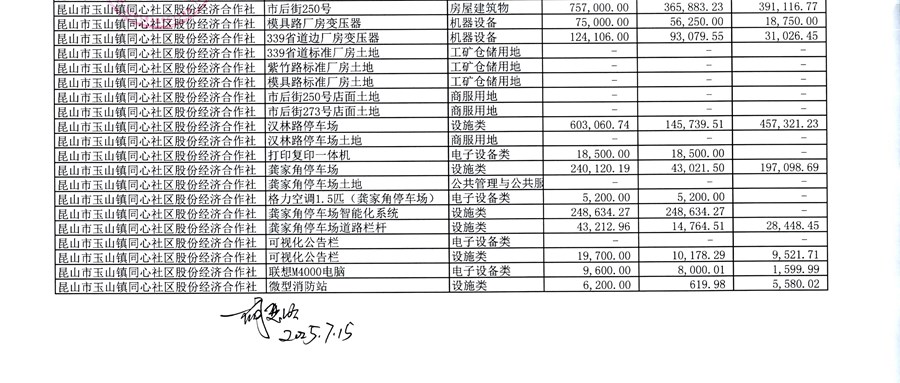 昆山市玉山镇同心社区股份经济合作社 市后街250号 房屋建筑物 757,000.00 365,883.23 391,116.77
昆山市玉山镇同心社区股份经济合作社 模具路厂房变压器 机器设备 75,000.00 56,250.00 18,750.00
昆山市玉山镇同心社区股份经济合作社 339省道边厂房变压器 机器设备 124,106.00 93,079.55 31,026.45
昆山市玉山镇同心社区股份经济合作社 339省道标准厂房土地 工矿仓储用地 - - -
昆山市玉山镇同心社区股份经济合作社 紫竹路标准厂房土地 工矿仓储用地 - - -
昆山市玉山镇同心社区股份经济合作社 模具路标准厂房土地 工矿仓储用地 - - -
昆山市玉山镇同心社区股份经济合作社 市后街250号店面土地 商服用地 - - -
昆山市玉山镇同心社区股份经济合作社 市后街273号店面土地 商服用地 - - -
昆山市玉山镇同心社区股份经济合作社 汉林路停车场 设施类 603,060.74 145,739.51 457,321.23
昆山市玉山镇同心社区股份经济合作社 汉林路停车场土地 商服用地 - - -
昆山市玉山镇同心社区股份经济合作社 打印复印一体机 电子设备类 18,500.00 18,500.00 -
昆山市玉山镇同心社区股份经济合作社 龚家角停车场 设施类 240,120.19 43,021.50 197,098.69
昆山市玉山镇同心社区股份经济合作社 龚家角停车场土地 公共管理与公共服 - - -
昆山市玉山镇同心社区股份经济合作社 格力空调1.5匹（龚家角停车场） 电子设备类 5,200.00 5,200.00 -
昆山市玉山镇同心社区股份经济合作社 龚家角停车场智能化系统 设施类 248,634.27 248,634.27 -
昆山市玉山镇同心社区股份经济合作社 龚家角停车场道路栏杆 设施类 43,212.96 14,764.51 28,448.45
昆山市玉山镇同心社区股份经济合作社 可视化公告栏 电子设备类 - - -
昆山市玉山镇同心社区股份经济合作社 可视化公告栏 设施类 19,700.00 10,178.29 9,521.71
昆山市玉山镇同心社区股份经济合作社 联想M4000电脑 电子设备类 9,600.00 8,000.01 1,599.99
昆山市玉山镇同心社区股份经济合作社 微型消防站 设施类 6,200.00 619.98 5,580.02
2025.7.15